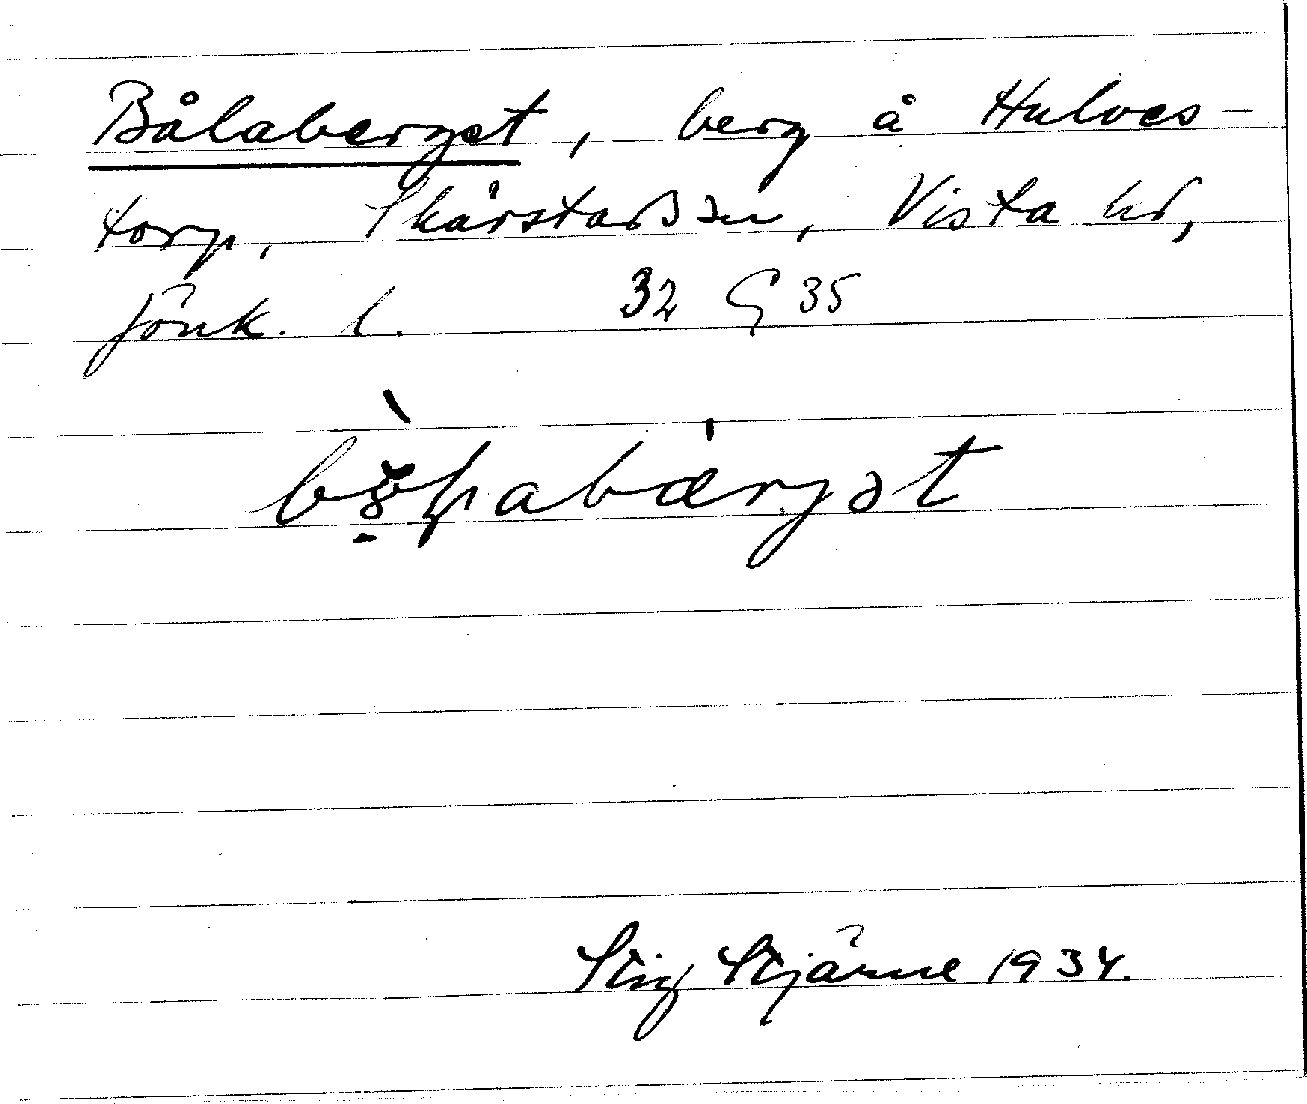 Bålaberget, berg å Hulves-
torp, Skärstad sn, Vista hd,
Jönk. l. 32 G 35
bɷ̀ɫabærjət
Stig Stjärne 1934.